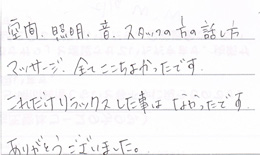 空間、照明、音、スタッフの方の話し方
マッサージ、全てここちよかったです。
これだけリラックスした事はなかったです
ありがとうございました。